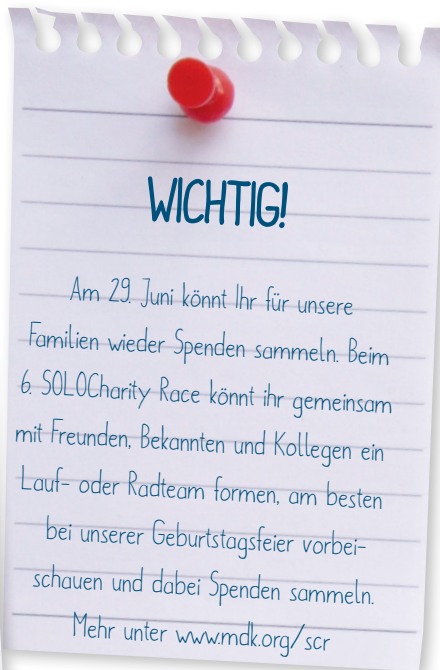 WICHTIG!
Am 29. Juni könnt Ihr für unsere
Familien wieder Spenden sammeln. Beim
6. SOLOCharity Race könnt ihr gemeinsam
mit Freunden, Bekannten und Kollegen ein
Lauf- oder Radteam formen, am besten
bei unserer Geburtstagsfeier vorbei-
schauen und dabei Spenden sammeln.
Mehr unter www.mdk.org/scr